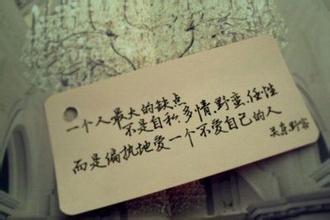 一个人最大的缺点
不是自私、多情、野蛮、任性
而是偏执地爱一个不爱自己的人